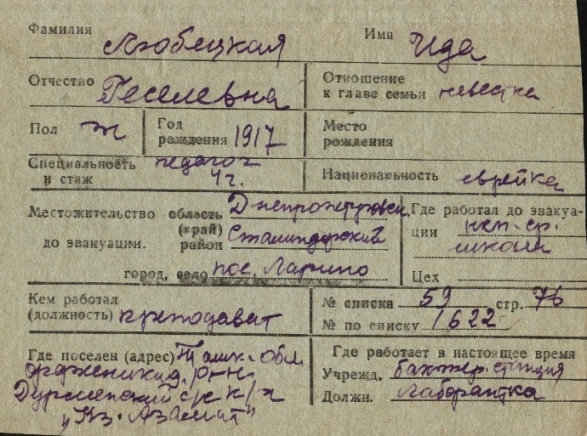 Фамилия Любецкая Имя Ида
Отчество Геселевна Отношение к главе семьи невестка
Пол ж Год рождения 1917 Место рождения
Специальность и стаж педагог 4 г. Национальность еврейка
Местожительство до эвакуации. область (край) Днепропетровск. Где работал до эвакуа-
район Сталиндорский ции неп. ср. школа
город, село пос. Ларино Цех
Кем работал (должность) преподават № списка 59 стр. 76
№ по списку 1622
Где поселен (адрес) Ташк. обл Где работает в настоящее время
орджоникид. р-н Учрежд. бактер. станция
Дурменский с/с к/х Должн. лаборантка
"Кз. Азамат"